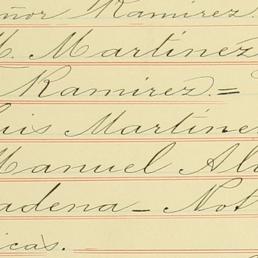 ñor Ramirez.
M. Martinez
Ramirez.=
uis Martine
Manuel Al
adena - Not
icas.